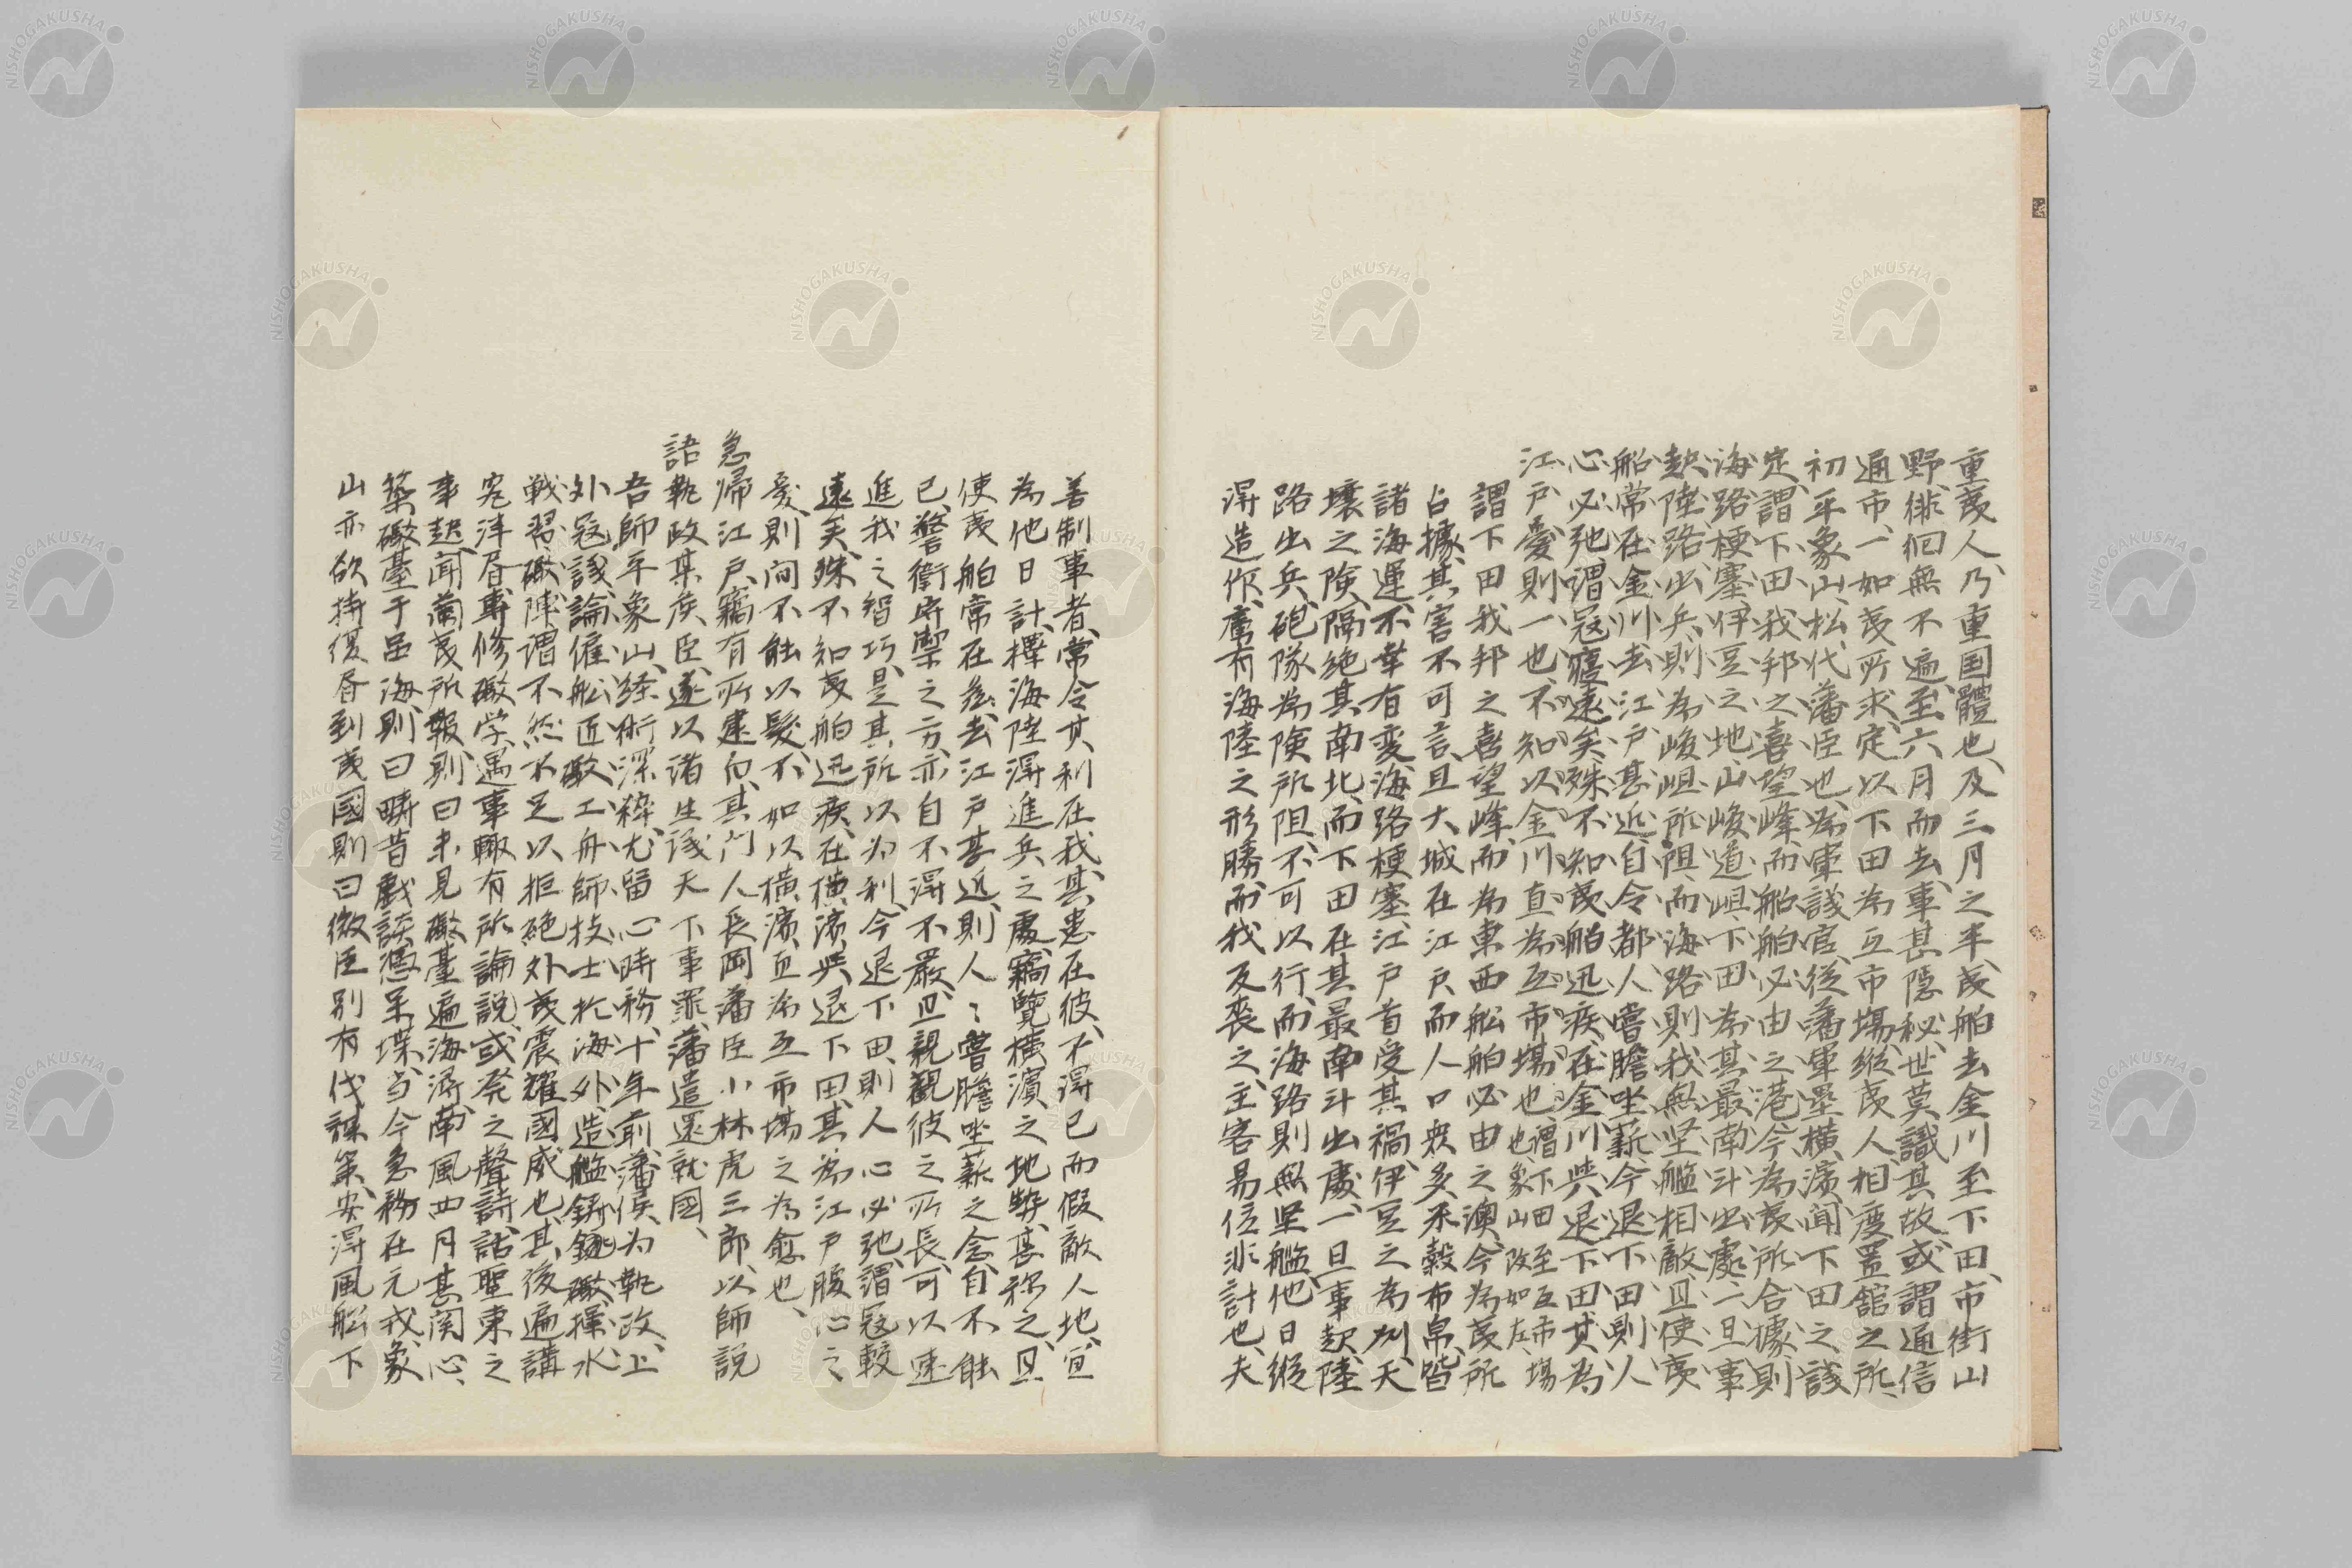 重夷人、乃重国體也、及三月之半、夷舶去金川至下田、市街山
野、徘徊無不遍、至六月而去、事甚隠秘、世莫識其故、或謂通信
通市、一如夷所求、定以下田為互市場、縦夷人相度置舘之所、
初平象山、松代藩臣也、為軍議官、従藩軍塁横濱、闻下田之議
定、謂下田、我邦之喜望峰、而船舶必由之港、今為夷所合據、則
海路梗塞、伊豆之地、山峻道岨、下田為其最南斗出處、一旦事
起、陸路出兵、則為峻岨所阻、而海路則我無堅艦相敵、且使夷
船常在金川、去江戸甚近、自令都人嘗膽坐薪、今退下田、則人
心必弛、謂冦寇遠矣、殊不知夷船迅疾、在金川與退下田、其為
江戸憂則一也、不知以金川直為互市場也、謂下田至互市場也、象山改如左、
謂下田我邦之喜望峰、而為東西船舶必由之澳、今為夷所
占據、其害不可言、且大城在江戸、而人口衆多、禾穀布帛、皆
諸海運、不幸有変、海路梗塞、江戸首受其禍、伊豆之為州、天
壤之険、隔絶其南北、而下田在其最南斗出處、一旦事起、陸
路出兵、砲隊為険所阻、不可以行、而海路則無堅艦、他日縦
得造作、虜有海陸之形勝、而我反喪之、主客易位、非計也、夫
善制事者、常令其利在我、其患在彼、不得已而假敵人地、宜
為他日計、擇海陸得進兵之處、竊覽横濱之地勢、甚称之、且
使夷舶常在茲、去江戸甚近、則人々嘗膽坐薪之念、自不能
已、警衛守禦之方、亦自不得不嚴、且親觀彼之所長、可以速
進我之智巧、是其所以为利、今退下田、則人心必弛、謂冦較
遠矣、殊不知夷舶迅疾、在横濱與退下田、其為江戸腹心之
憂、則间不能以髮、不如以横濱直為互市場之為愈也、
急歸江戸、竊有所建白、其门人長岡藩臣小林虎三郎、以師説
語執政某侯臣、遂以諸生议天下事罪、藩遣還就國、
吾師平象山、経術深粹、尤留心時務、十年前、藩侯为執政、上
外冦議、論僱船匠礮工舟師技士於海外、造艦鑄礮、操水
戦習礮陣、謂不然不足以拒絶外夷震耀國威也、其後遍講
究洋書、専修礮学、遇事輙有所論説、或発之聲詩、話聖東之
事起、闻蘭夷所報、則曰未見礮臺遍海潯、南風四月甚関心、
築礮臺于品海、則曰疇昔戯談憑呆堞、当今急務在元戎、象
山亦欲掎侵唇到夷國、則曰微臣别有伐謀策、安得風船下